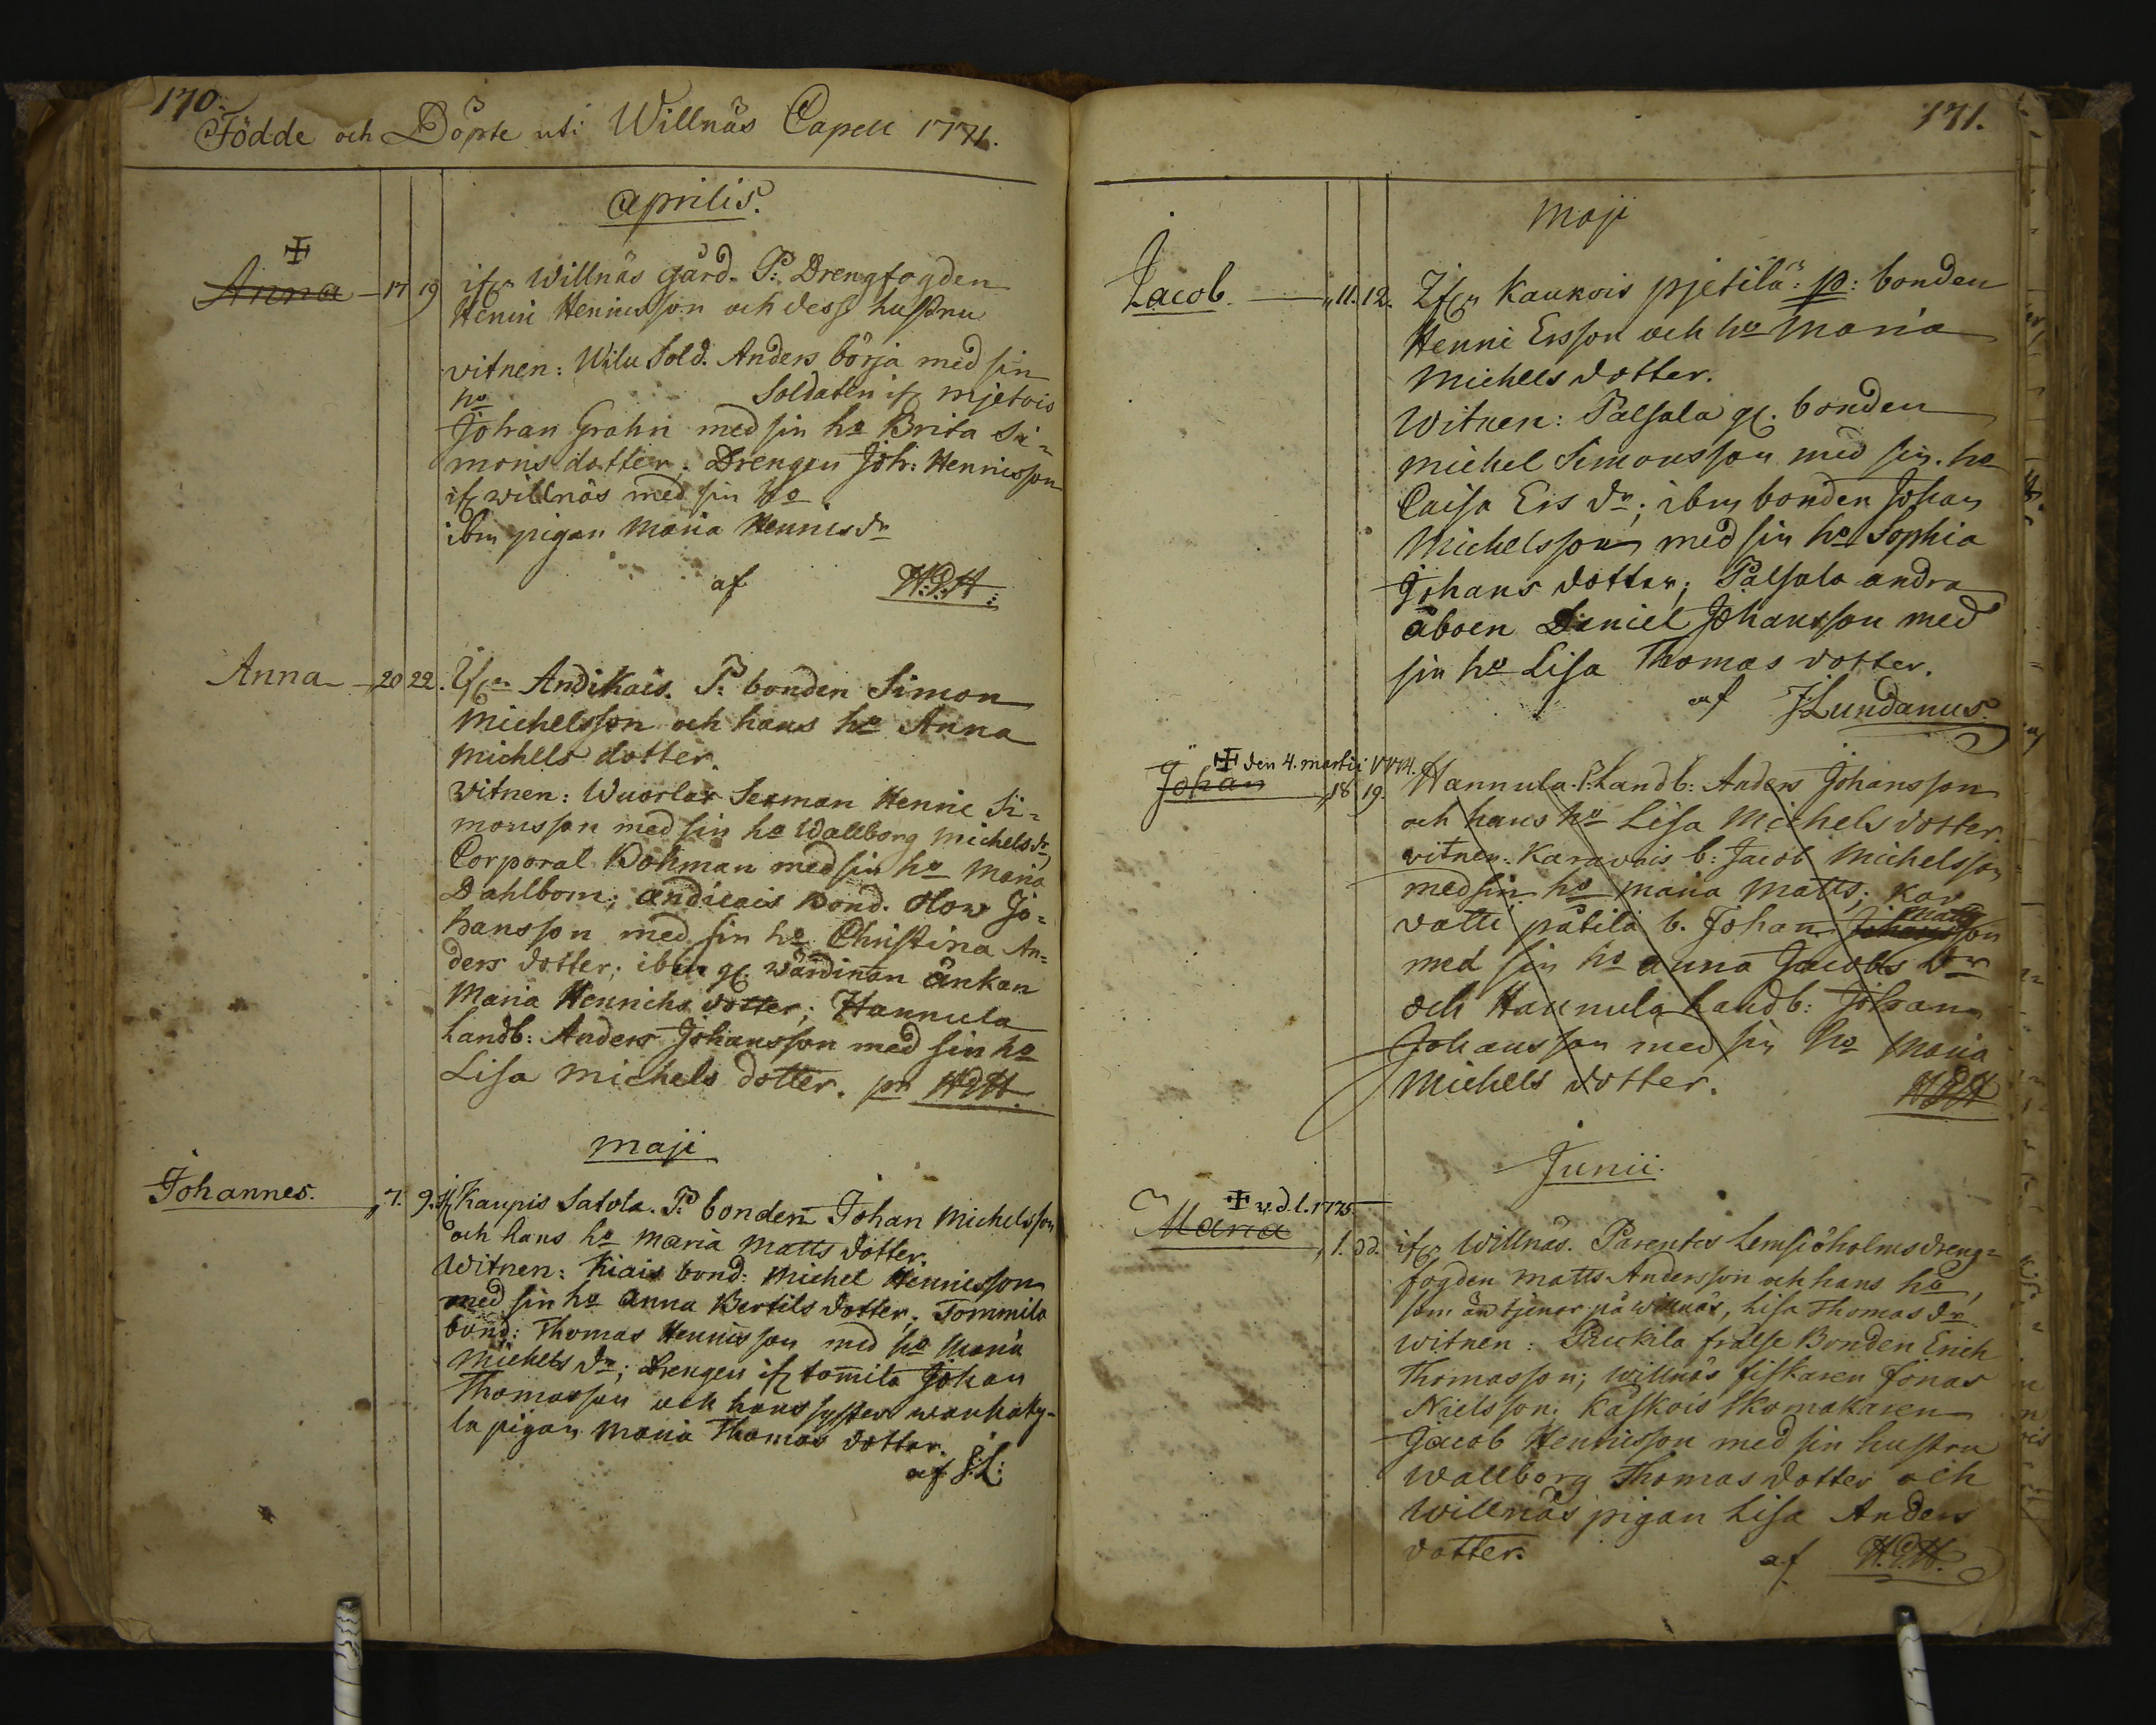 170.
Födde och Döpte uti Willnäs Capell 1771.
Aprilis.
Anna 17 19 ifrn Willnäs gård. P: Drengfogden
Henric Henricsson och dess hustru
vitnen: Wilu Sold. Anders börja med sin
ho Soldaten if: mjetois
Johan Grahn med sin ho Brita Si=
mons dotter; Drengen Joh: Henricsson
if willnäs med sin ho
ibm pigan Maria Henrics dr
af H.P.H:
Anna 20 22. Ifrn Andikais. P: bonden Simon
Michelsson och hans ho Anna
Michels dotter.
vitnen: Wuorlax Sexman Henric Si=
monsson med sin ho Wallborg Michelsdr
Corporal Bohman med sin ho Maria
Dahlbom; andicais Bond. Olow Jo=
hansson med sin ho Christina An=
ders dotter; ibm gl. wärdinan änkan
Maria Henrichs dotter; Hannula
Landb: Anders Johansson med sin ho
Lisa Michels dotter. pr HPH.
Maji
Johannes. „7. 9. if Kaupis Satola. P: bonden Johan Michelsson
och hans ho Maria Matts dotter.
Witnen: Kiais bond: Michel Henricsson
med sin ho Anna Bertils dotter; Tommila
bond: Thomas Henricsson med ho Maria
Michels dr; Drengen if tommila Johan
Thomasson och hans syster wanhaky-
la pigan Maria Thomas dotter.
af J:L:
171.
Maji
Jacob. „11. 12. Ifrn Kaukois pjetilä: p: bonden
Henric Ersson och ho Maria
Michels dotter.
Witnen: Palsala gl. bonden
Michel Simonsson med sin ho
Caisa Ers dr; ibm bonden Johan
Michelsson med sin ho Sophia
Johans dotter; Palsala andra
åboen Daniel Johansson med
sin ho Lisa Thomas dotter.
af JLundanus.
den 4. martii 1774.
Johan „18 19. Hannula. P: Landb: Anders Johansson
och hans ho Lisa Michels dotter.
vitnen: Karavais b: Jacob Michelsson
med sin ho Maria Matts; Kar
vatti pätilä b. Johan Johansson Matts
med sin ho Anna Jacobs dr
och Hannula Landb: Johan
Johansson med sin ho Maria
Michels dotter. HPH
Junii.
v.d.l. 1775
Maria „1. dd. ifrn Willnäs. Parentes Lemsiöholms dreng=
fogden Matts Andersson och hans ho,
som än tjenar på willnäs, Lisa Thomas dr
witnen: Pruckila frälse Bonden Erich
Thomasson; willnäs fiskaren Jonas
Nielsson; Kaskois skomakaren
Jacob Henricsson med sin hustru
Wallborg Thomas dotter och
Willnäs pigan Lisa Anders
dotter. af H.P.H.